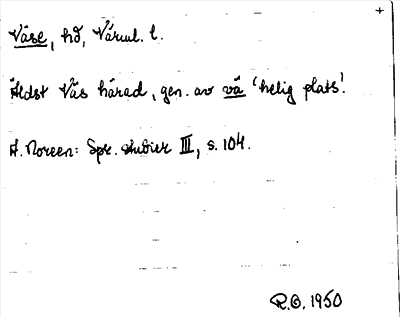 +
Väse, hd, Värml. l.
Äldst Väs härad, gen. av vä 'helig plats'.
A. Noreen: Spr. studier III, s. 104.
R.O. 1950